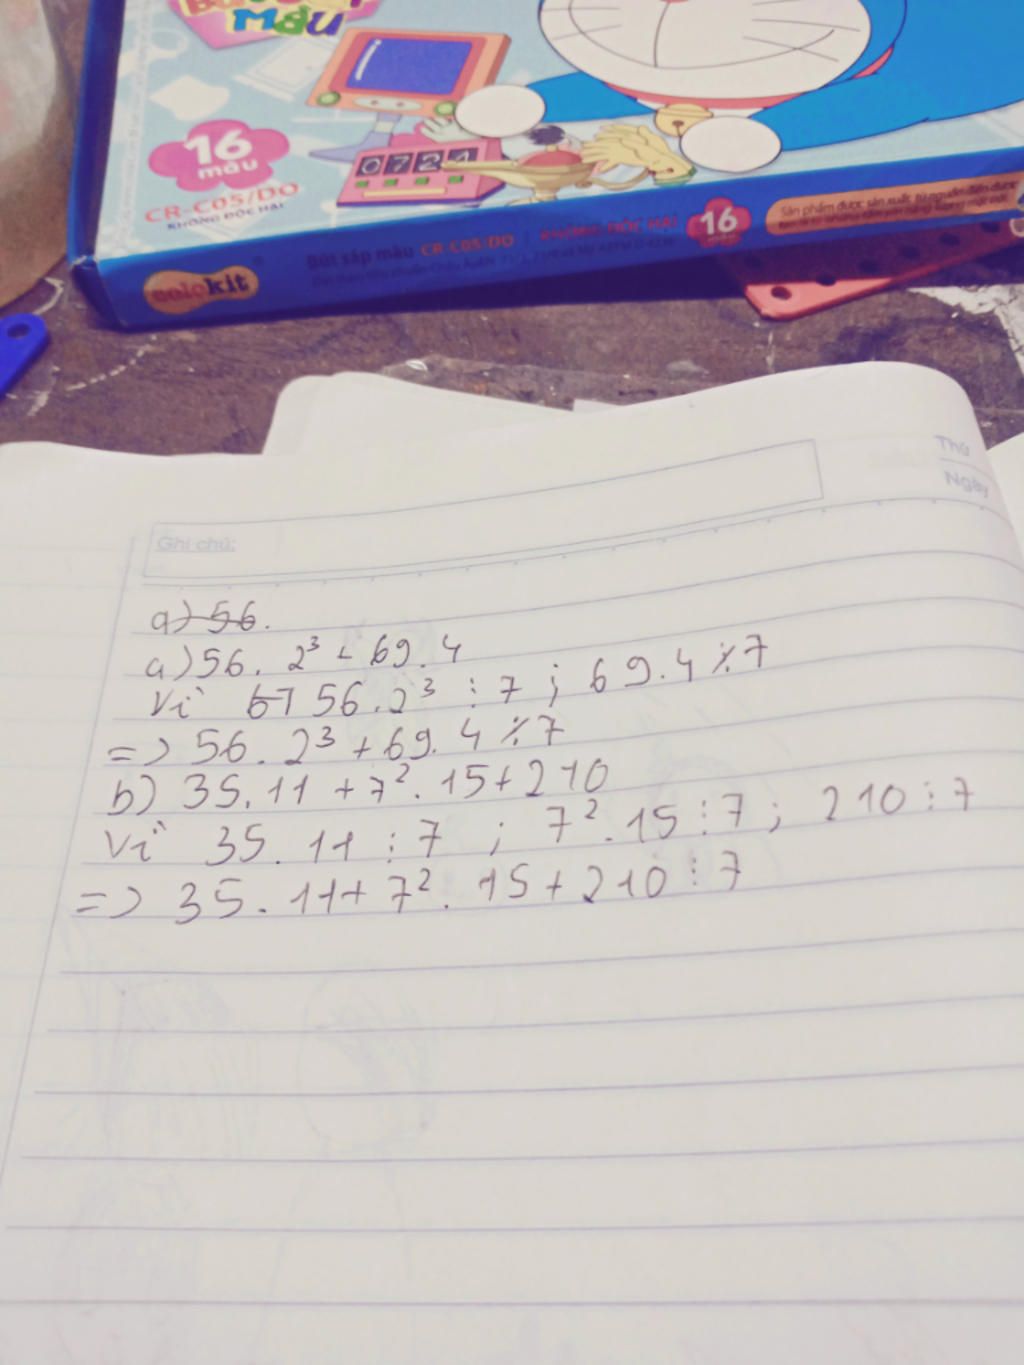 màu
16
màu
CR-C05/DO
KHÔNG ĐỘC HẠI
0721
colokit
Bút sáp màu CR-C05/DO
KHÔNG ĐỘC HẠI
16
Sản phẩm được sản xuất từ nguyên liệu được
Thứ
Ngày
Ghi chú:
a) 56.
a) 56. 2³ + 69.4
Vì 56.2³ ⋮ 7 ; 69.4 ⋮̸ 7
=> 56. 2³ + 69. 4 ⋮̸ 7
b) 35.11 + 7². 15 + 210
Vì 35. 11 ⋮ 7 ; 7².15 ⋮ 7 ; 210 ⋮ 7
=> 35. 11 + 7². 15 + 210 ⋮ 7